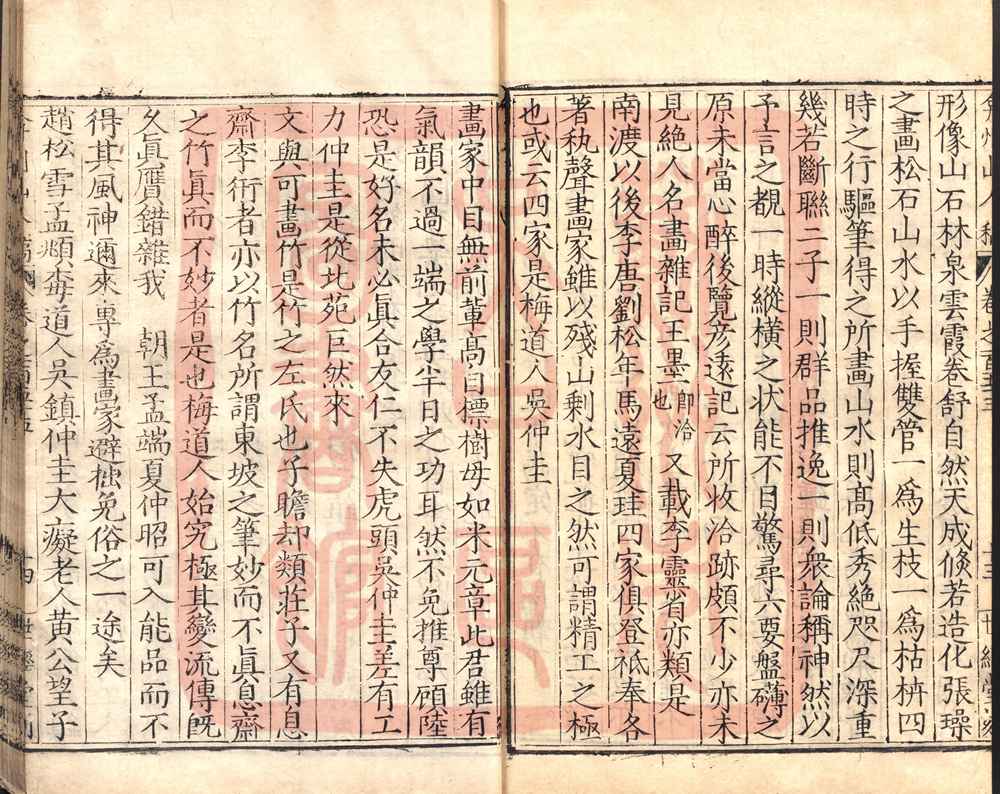 形像山石林泉雲霞卷舒自然天成倐若造化張璪
之畫松石山水以手握雙管一爲生枝一爲枯枿四
時之行驅筆得之所畫山水則髙低秀絶咫尺深重
幾若斷聯二子一則群品推逸一則衆論稱神然以
予言之覩一時縱横之状能不目驚尋六要盤礡之
原未當心醉後覽彦逺記云所收洽跡頗不少亦未
見絶人名畫雜記王墨即洽也又載李靈省亦類是
南渡以後李唐劉松年馬遠夏珪四家俱登祗奉各
著執聲畫家雖以殘山剩水目之然可謂精工之極
也或云四家是梅道人吳仲圭
畫家中目無前軰髙自標樹毋如米元章此君雖有
氣韻不過一端之學半日之功耳然不免推尊顧陸
恐是好名未必眞合友仁不失虎頭吳仲圭差有工
力仲圭是從北苑巨然來
文與可畫竹是竹之左氏也子瞻却類莊子又有息
齋李衎者亦以竹名所謂東坡之筆妙而不眞息齋
之竹眞而不妙者是也梅道人始究極其變流傳旣
久眞贋錯雜我 朝王孟端夏仲昭可入能品而不
得其風神邇來專爲畫家避拙免俗之一途矣
趙松雪孟頫梅道人吳鎮仲圭大癡老人黄公望子